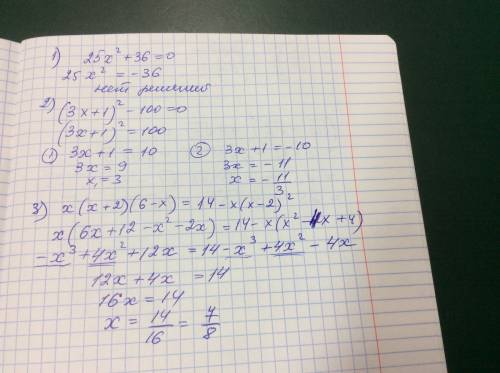 1) 25x² + 36 = 0
25x² = -36
нет решений
2) (3x+1)² - 100 = 0
(3x+1)² = 100
① 3x+1 = 10
3x = 9
x₁ = 3
② 3x+1 = -10
3x = -11
x = -11/3
3) x(x+2)(6-x) = 14 - x(x-2)²
x(6x+12-x²-2x) = 14 - x(x²-4x+4)
-x³+4x²+12x = 14 - x³+4x²-4x
12x+4x = 14
16x = 14
x = 14/16 = 7/8